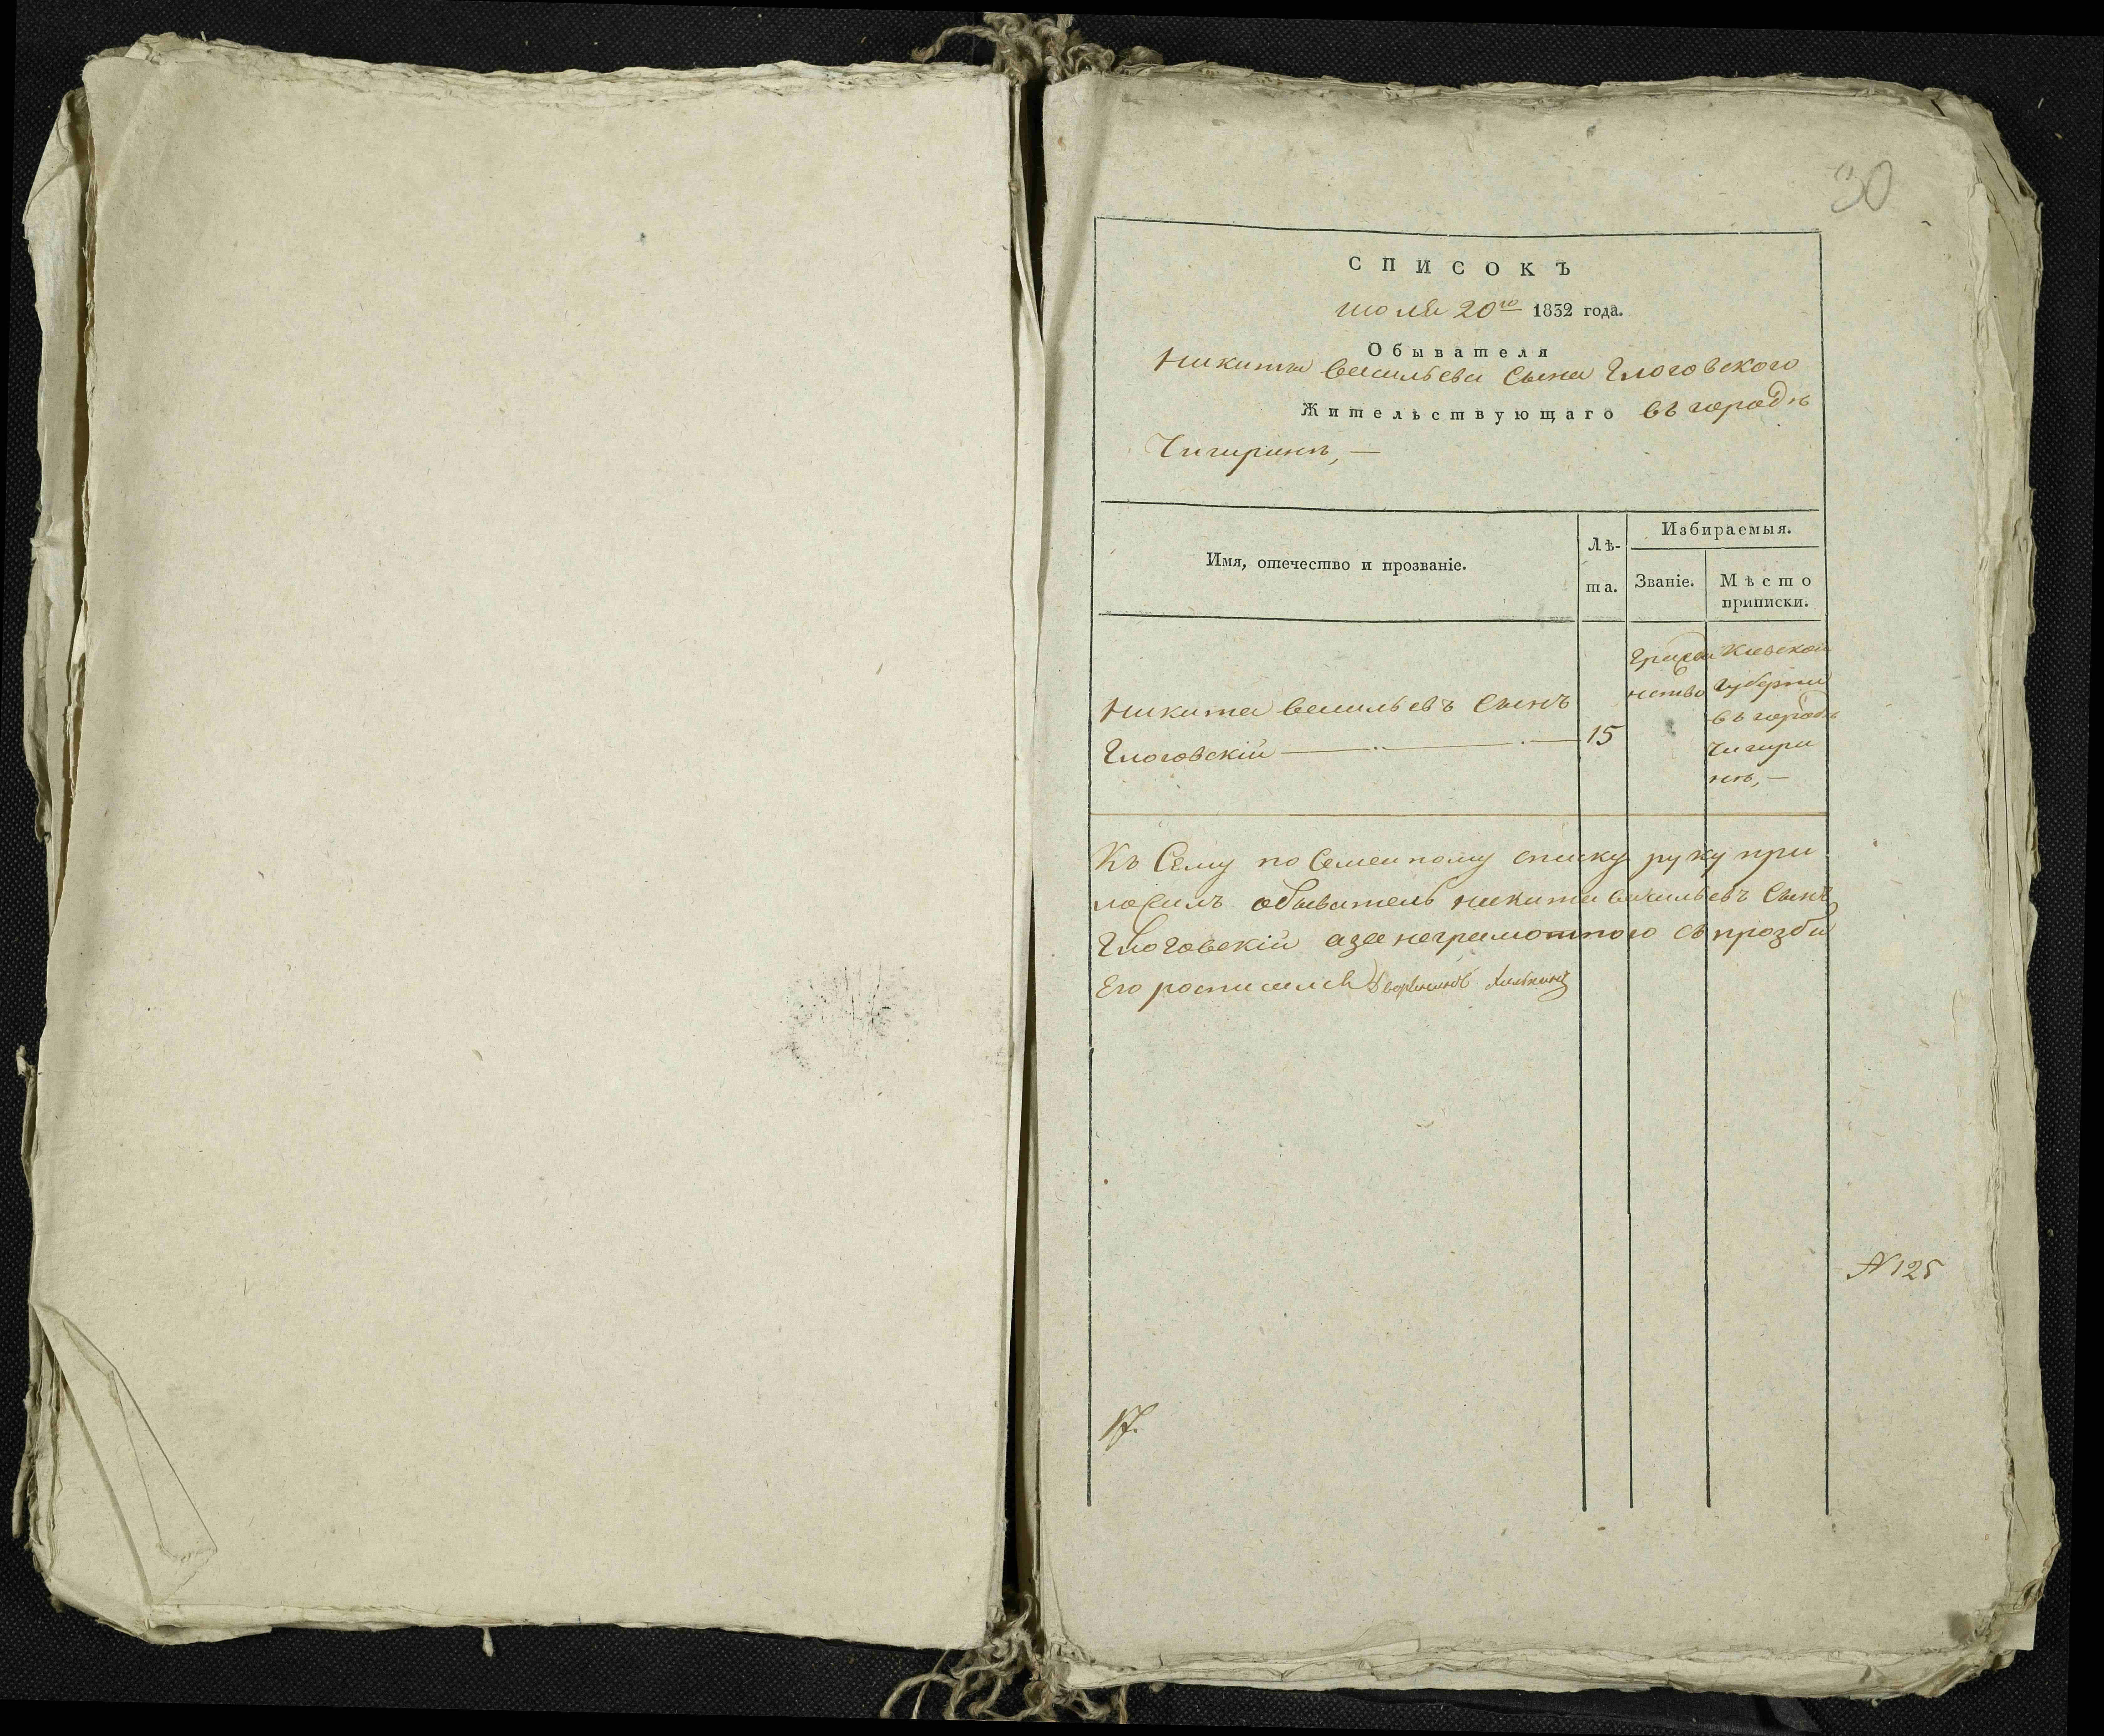 30
СПИСОКЪ
июля 20го 1832 года.
Обывателя
Никиты Васильева Сына Глоговского
Жительствующаго въ городѣ
Чигиринѣ,—
Имя, отечество и прозваніе.
Лѣ-
та.
Избираемыя.
Званіе.
Мѣсто
приписки.
Никита Васильевъ Сынъ
Глоговскій
15
Гражда
нство
Киевской
Губернии
въ городѣ
Чигири
нѣ,—
Къ Сему посемейному списку руку при
ложилъ обыватель никита васильевъ Сынъ
Глоговскій азанеграмотного съ прозби
Его росписался Дворянинъ
N 125
17.